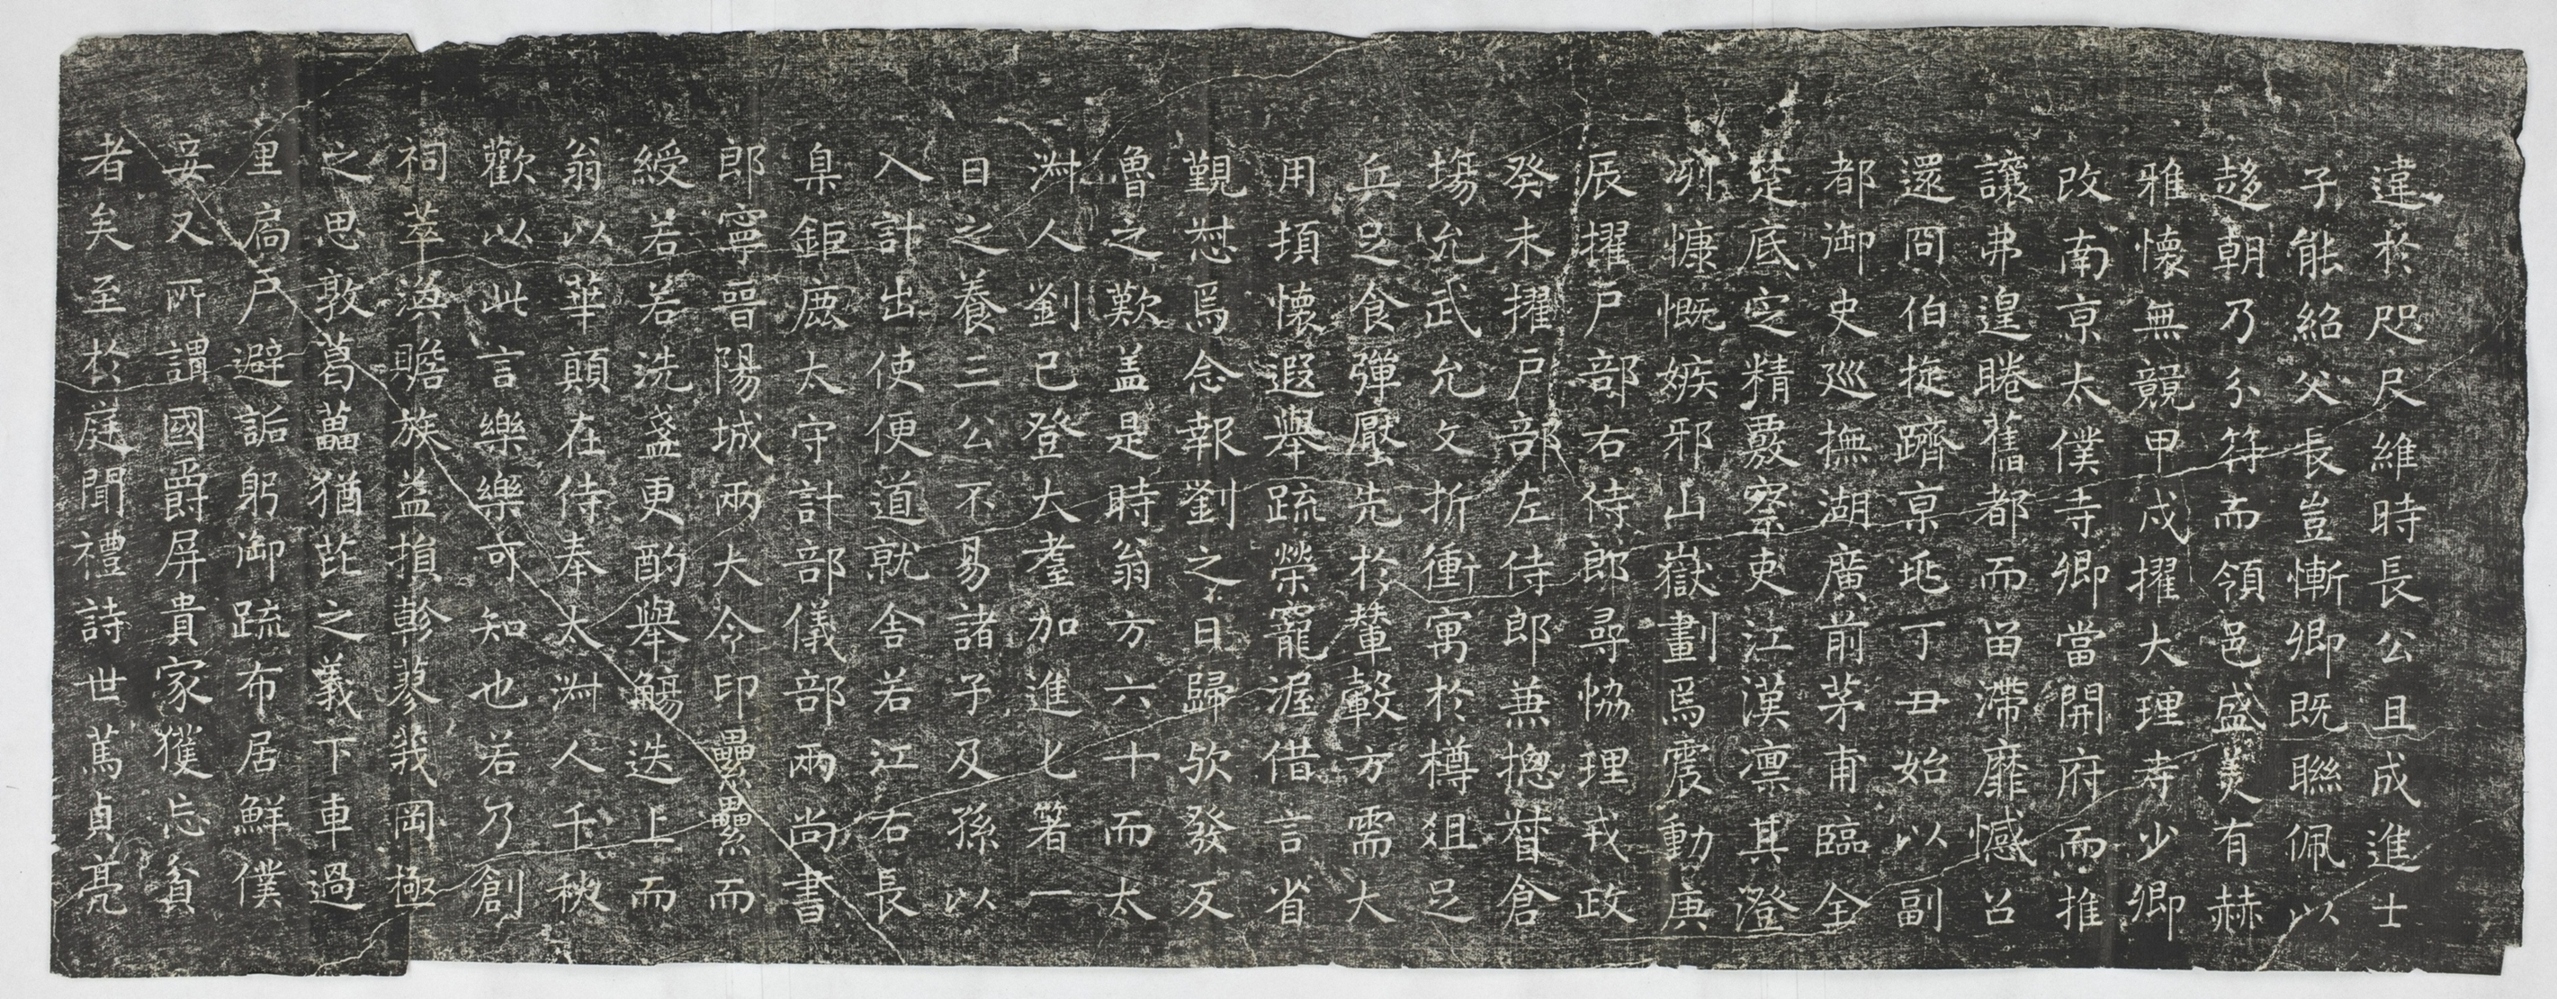 違於咫尺維時長公且成進士
子能紹父長豈慚卿既聯佩以
趍朝乃分符而領邑盛美有赫
雅懷無競甲戌擢大理寺少卿
改南京太僕寺卿當開府而推
讓弗遑睠舊都而畱滯靡憾召
還冏伯㨗躋京兆丁丑始以副
都御史巡撫湖廣前茅甫臨全
楚底定精覈察吏江漢凛其澄
冽慷慨嫉邪山嶽劃焉震動庚
辰擢戶部右侍郎尋恊理戎政
癸未擢戶部左侍郎兼摠督倉
塲允武允文折衝寓於樽俎足
兵足食彈壓先於輦轂方需大
用項懷遐舉疏榮寵渥借言省
覲懟焉念報劉之日歸歟發反
魯之歎盖是時翁方六十而太
淋人劉已登大耋加進匕箸一
日之養三公不易諸子及孫以
入計出使便道就舍若江右長
臬鉅鹿太守計部儀部兩尚書
郎寧晉陽城兩大令印纍纍而
綬若若洗盞更酌舉觴迭上而
翁以華顛在侍奉太淋人千秋
歡以此言樂樂可知也若乃創
祠萃渙贍族益損軫蓼莪罔極
之思敦葛藟猶芘之義下車過
里扃戶避詬躬御疏布居鮮僕
妾又所謂國爵屏貴家獲忘貧
者矣至於庭聞禮詩世篤貞亮